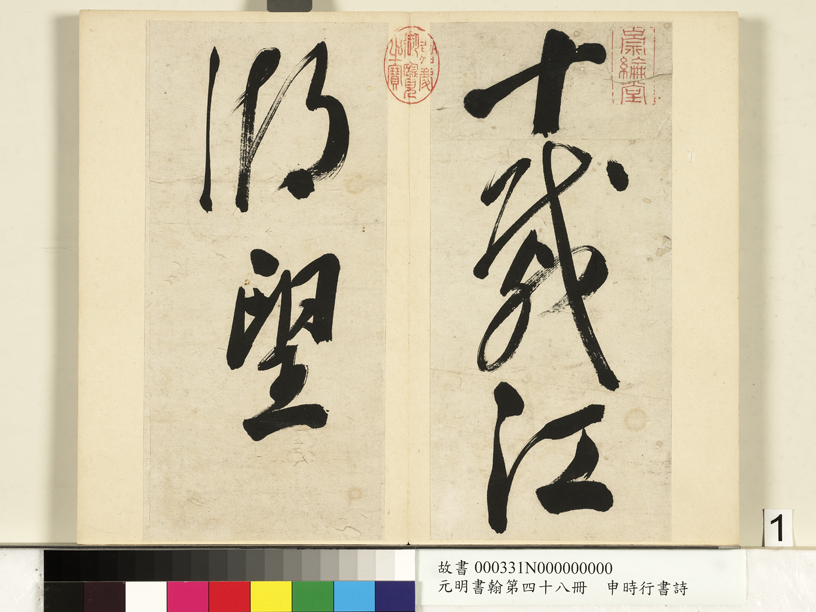 十載江
湖望
嘉慶
御覽
之寶
1
故書 000331N000000000
元明書翰第四十八冊　申時行書詩